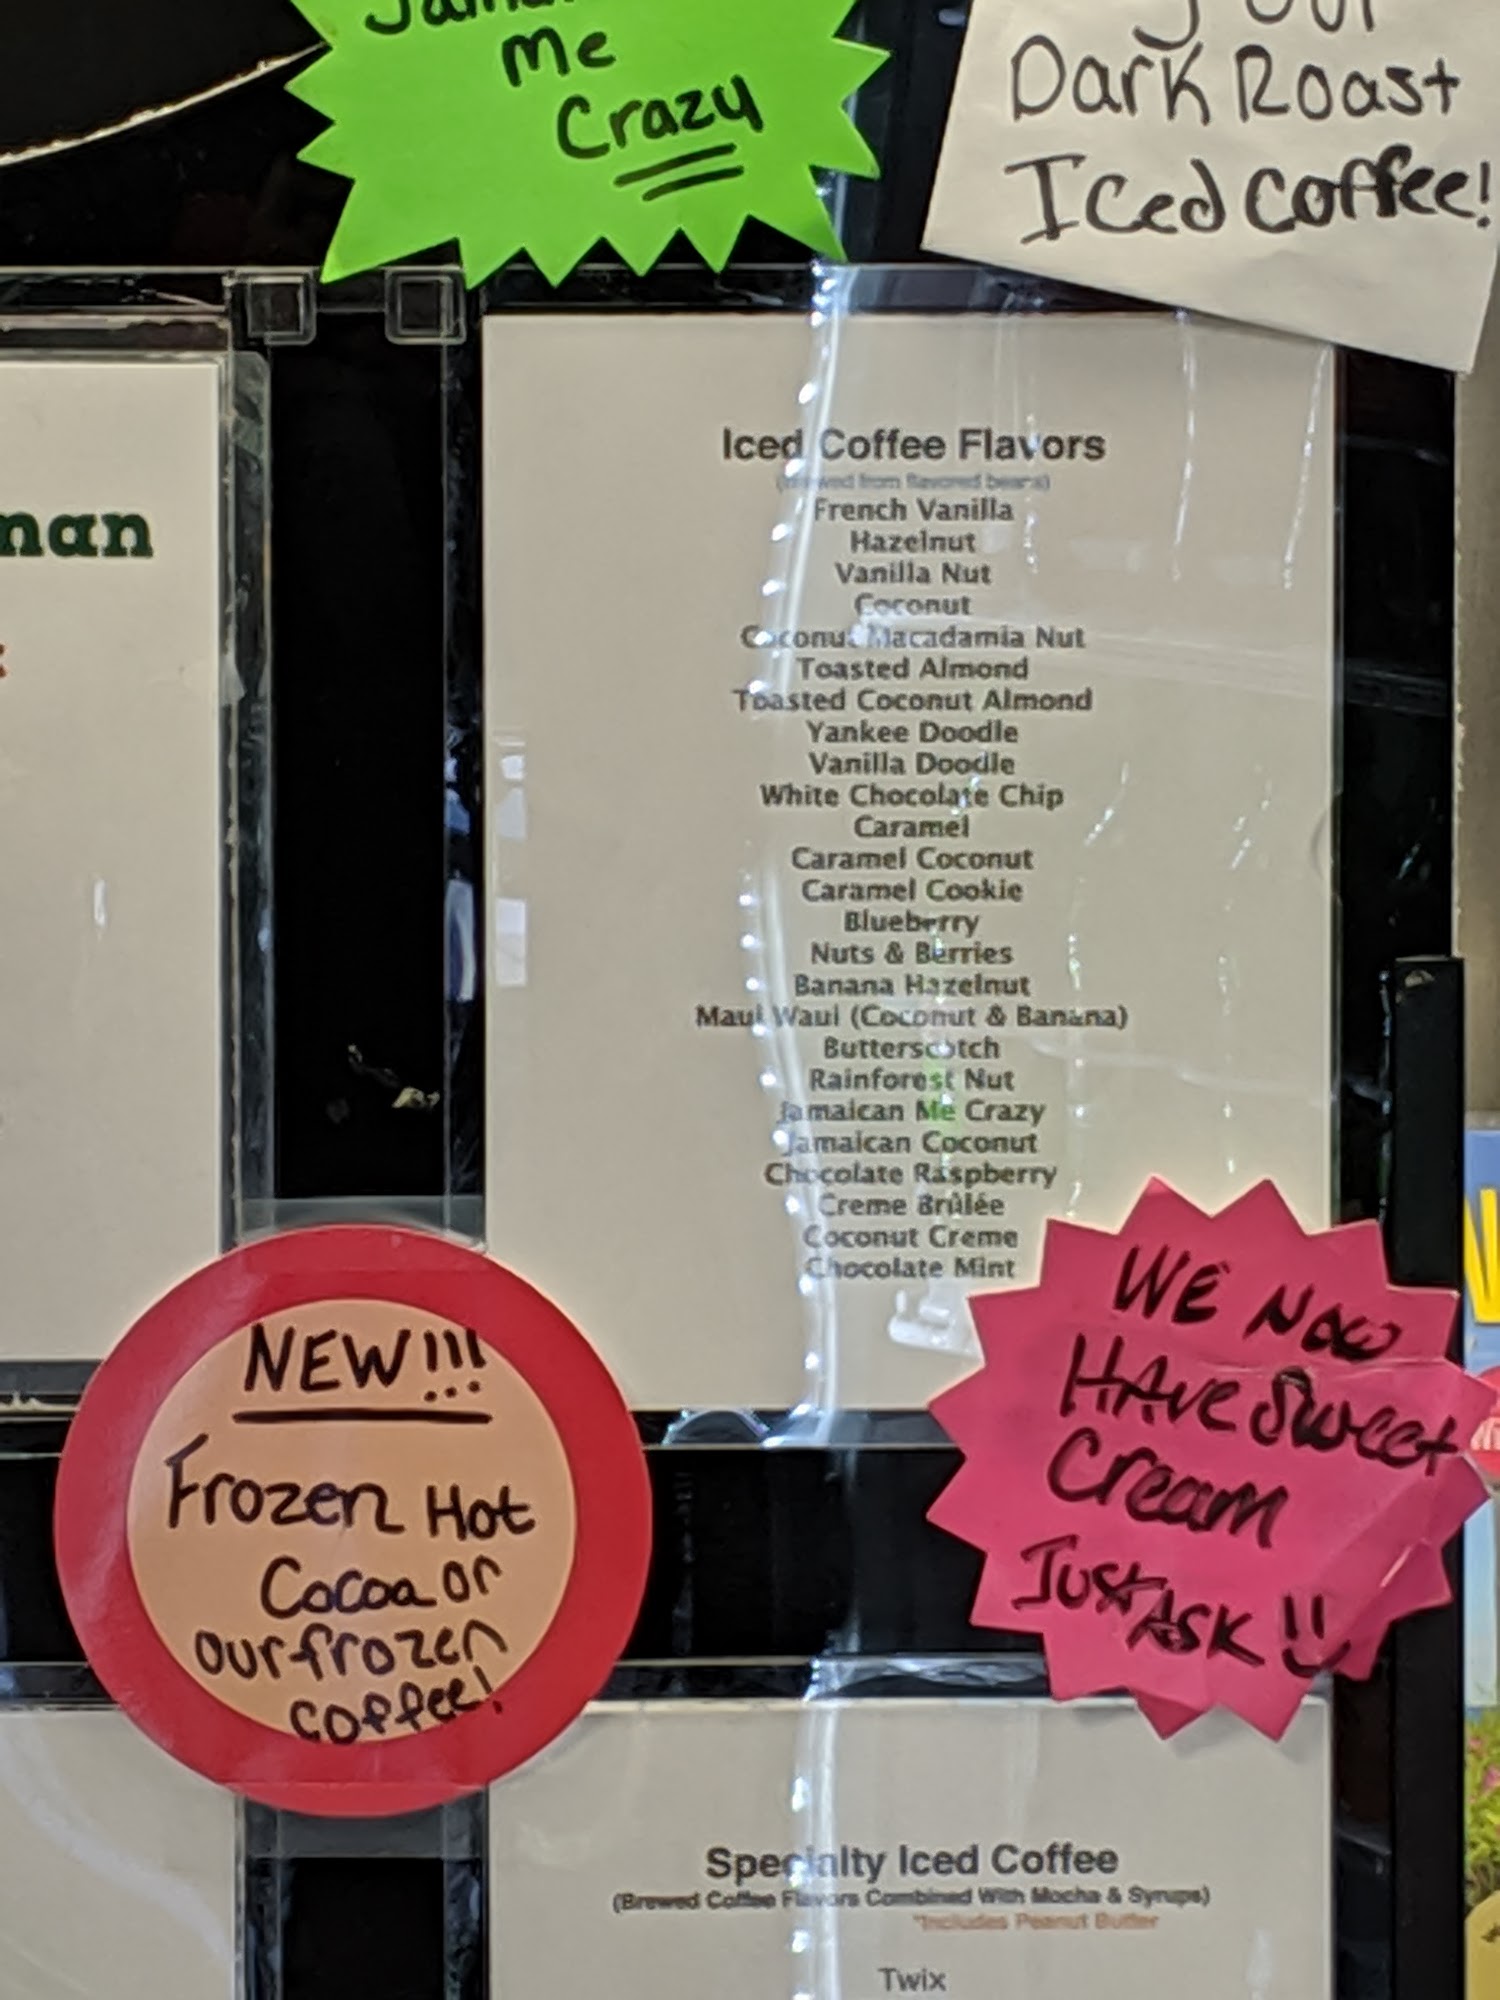 Me
Crazy
Dark Roast
Iced Coffee!
man
Iced Coffee Flavors
(brewed from flavored beans)
French Vanilla
Hazelnut
Vanilla Nut
Coconut
Coconut Macadamia Nut
Toasted Almond
Toasted Coconut Almond
Yankee Doodle
Vanilla Doodle
White Chocolate Chip
Caramel
Caramel Coconut
Caramel Cookie
Blueberry
Nuts & Berries
Banana Hazelnut
Maui Waui (Coconut & Banana)
Butterscotch
Rainforest Nut
Jamaican Me Crazy
Jamaican Coconut
Chocolate Raspberry
Creme Brûlée
Coconut Creme
Chocolate Mint
NEW!!!
Frozen Hot
Cocoa or
our frozen
coffee!
WE NOW
HAVE Sweet
Cream
JUST ASK !!
Specialty Iced Coffee
(Brewed Coffee Flavors Combined With Mocha & Syrups)
*Includes Peanut Butter
Twix